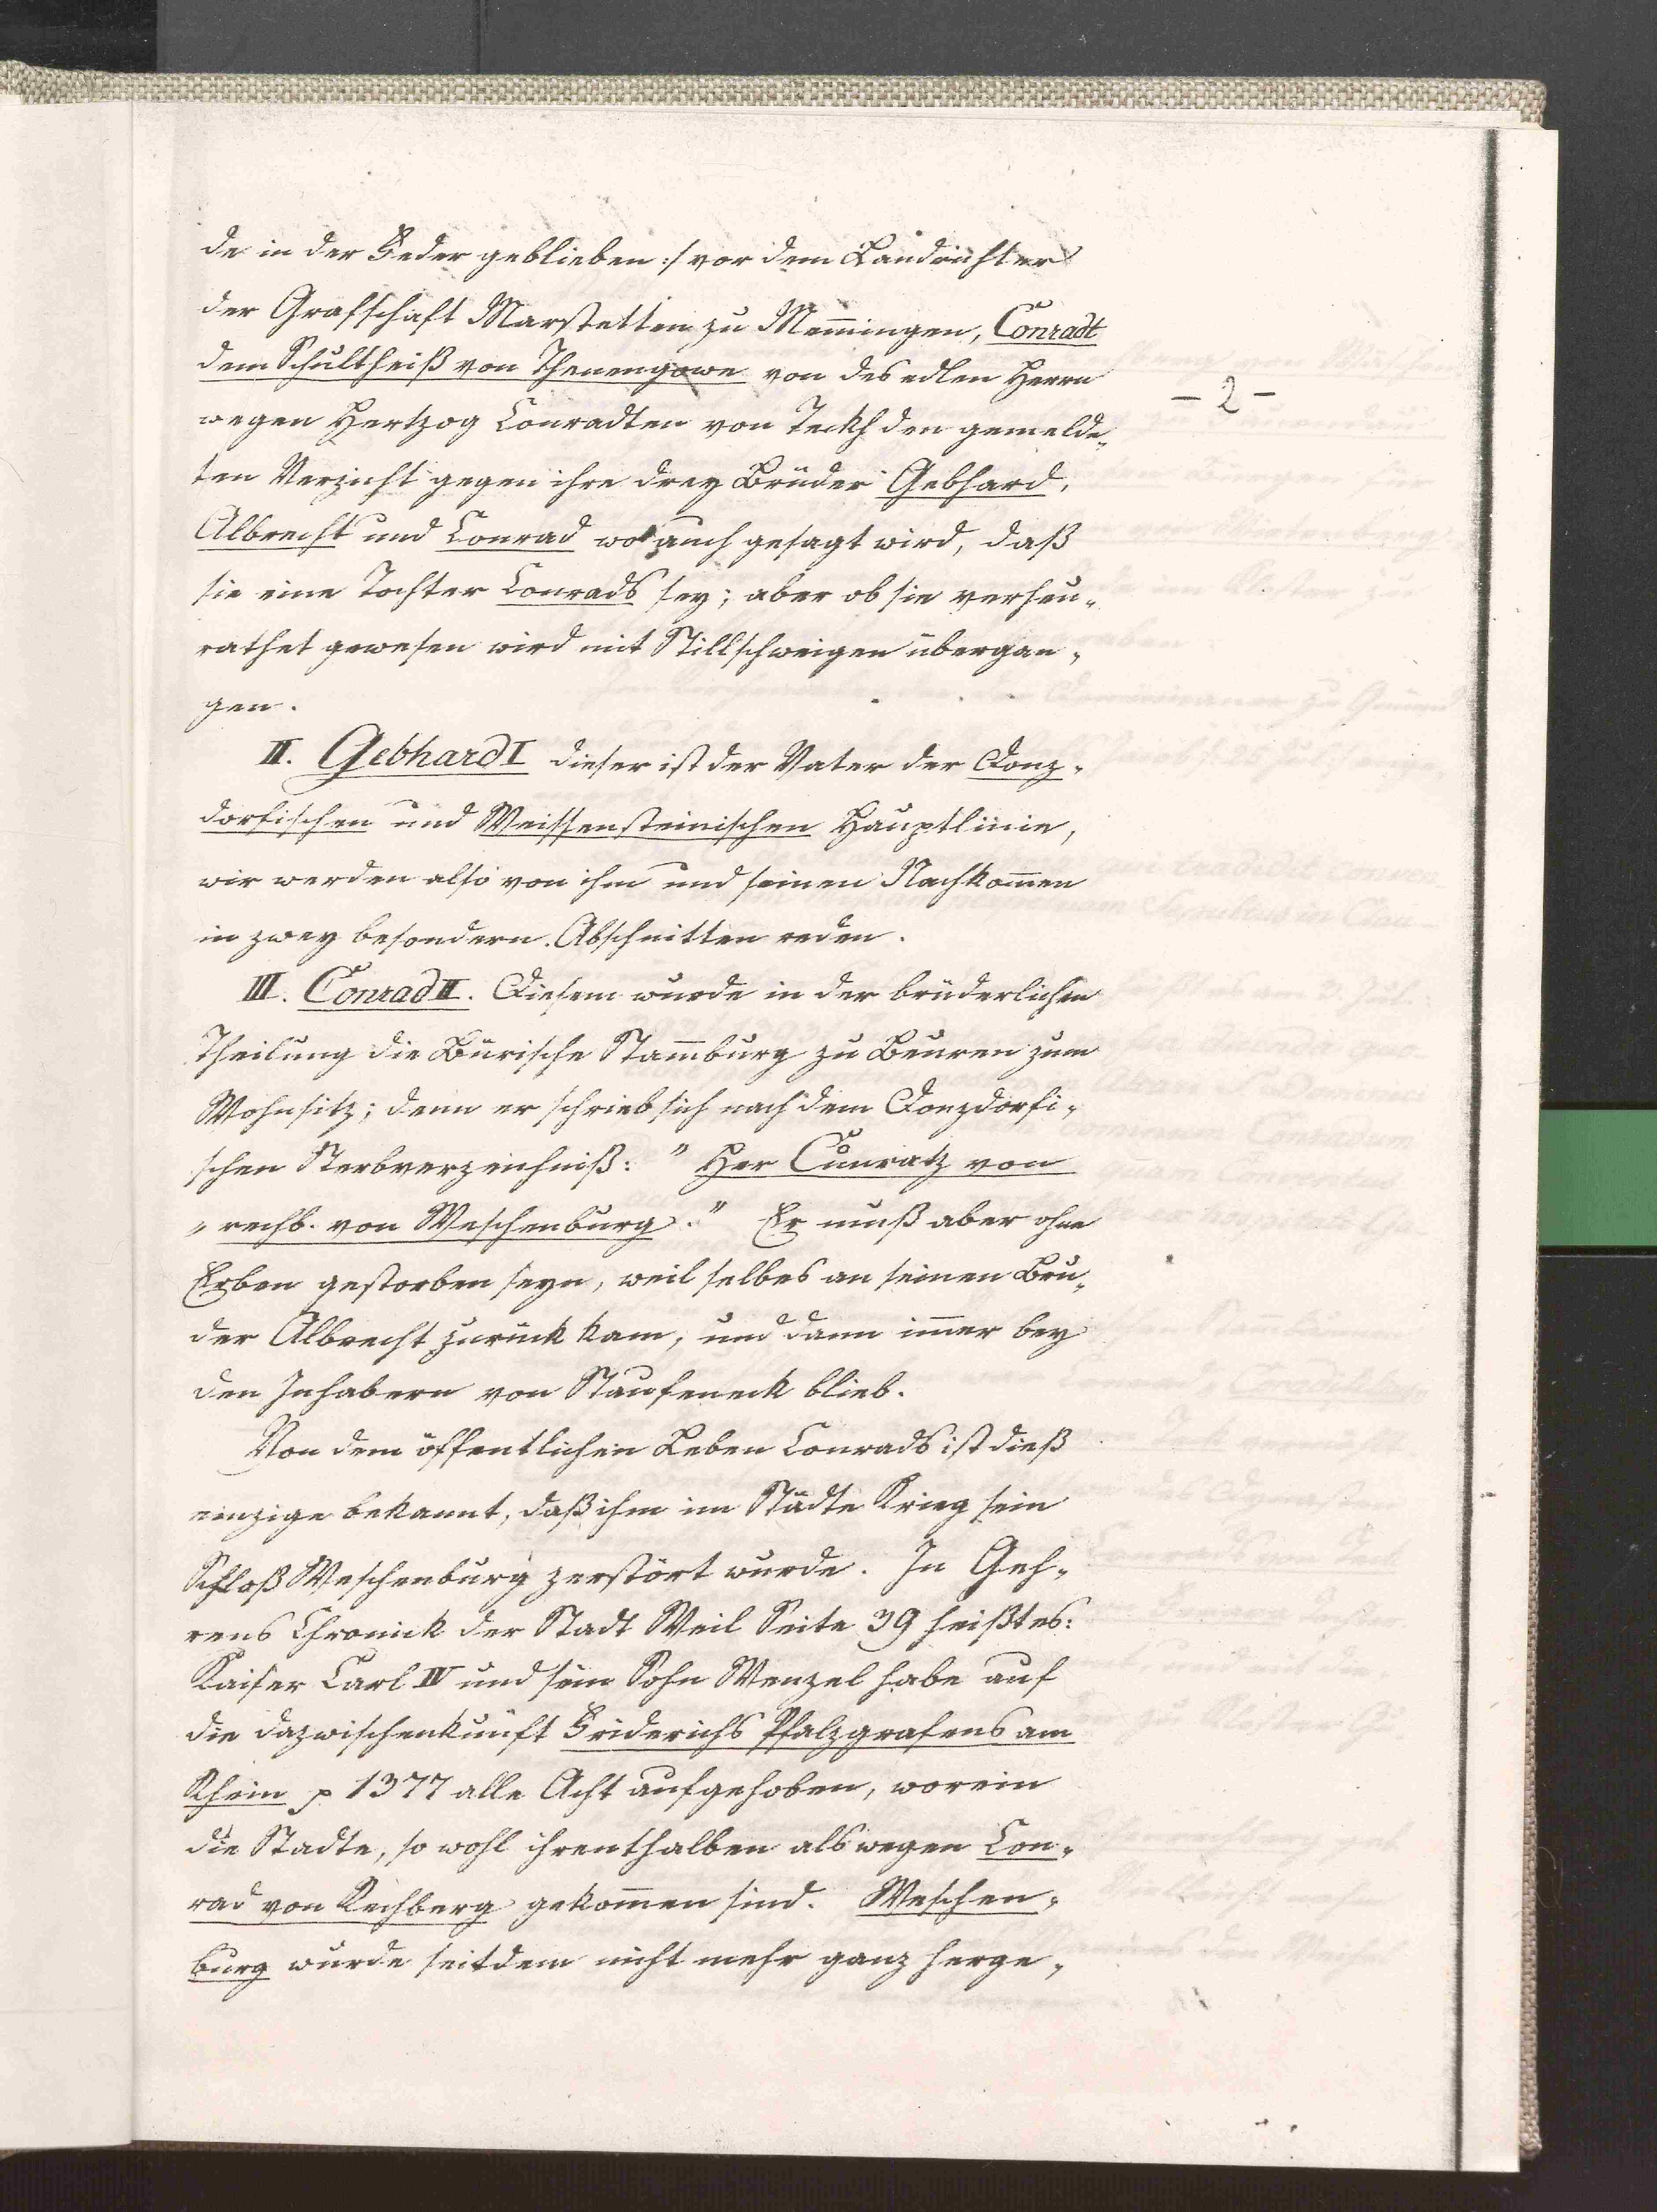 de in der Feder geblieben :/ vor dem Landrichter
der Grafschaft Marstetten zu Mem̄ingen, Conradt
dem Schultheiß von Thenengowe von des edlen Herrn
- 2 -
wegen Hertzog Conradten von Teckh den gemelde„
ten Verzicht gegen ihre drey Brüder Gebhard,
Albrecht und Conrad wo auch gesagt wird, daß
sie eine Tochter Conrads sey; aber ob sie verheu„
rathet gewesen wird mit Stillschweigen übergan„
gen.
II. Gebhard I dieser ist der Vater der Donz„
dorfischen und Weissensteinischen Hauptlinie,
wir werden also von ihm und seinen Nachkom̄en
in zwey besondern Abschnitten reden.
III. Conrad II. Diesem wurde in der brüderlichen
Theilung die Bürische Stam̄burg zu Beuren zum
Wohnsitz; denn er schrieb sich nach dem Donzdorfi„
schen Sterbverzeichniß: " Her Cunratz von
„ rechb. von Weschenburg." Er muß aber ohne
Erben gestorben seyn, weil selbes an seinen Bru„
der Albrecht zurück kam, und dann im̄er bey
den Inhabern von Staufeneck blieb.
Von dem öffentlichen Leben Conrads ist dieß
einzige bekannt, daß ihm im Städte Krieg sein
Schloß Weschenburg zerstört wurde. In Geh„
rens Chronick der Stadt Weil Seite 39 heißt es:
Kaiser Carl IV und sein Sohn Wenzel habe auf
die dazwischenkunft Friderichs Pfalzgrafens am
Rhein p 1377 alle Acht aufgehoben, worein
die Stadte, so wohl ihrenthalben als wegen Con„
rad von Rechberg gekom̄en sind. Weschen„
burg wurde seitdem nicht mehr ganz herge„